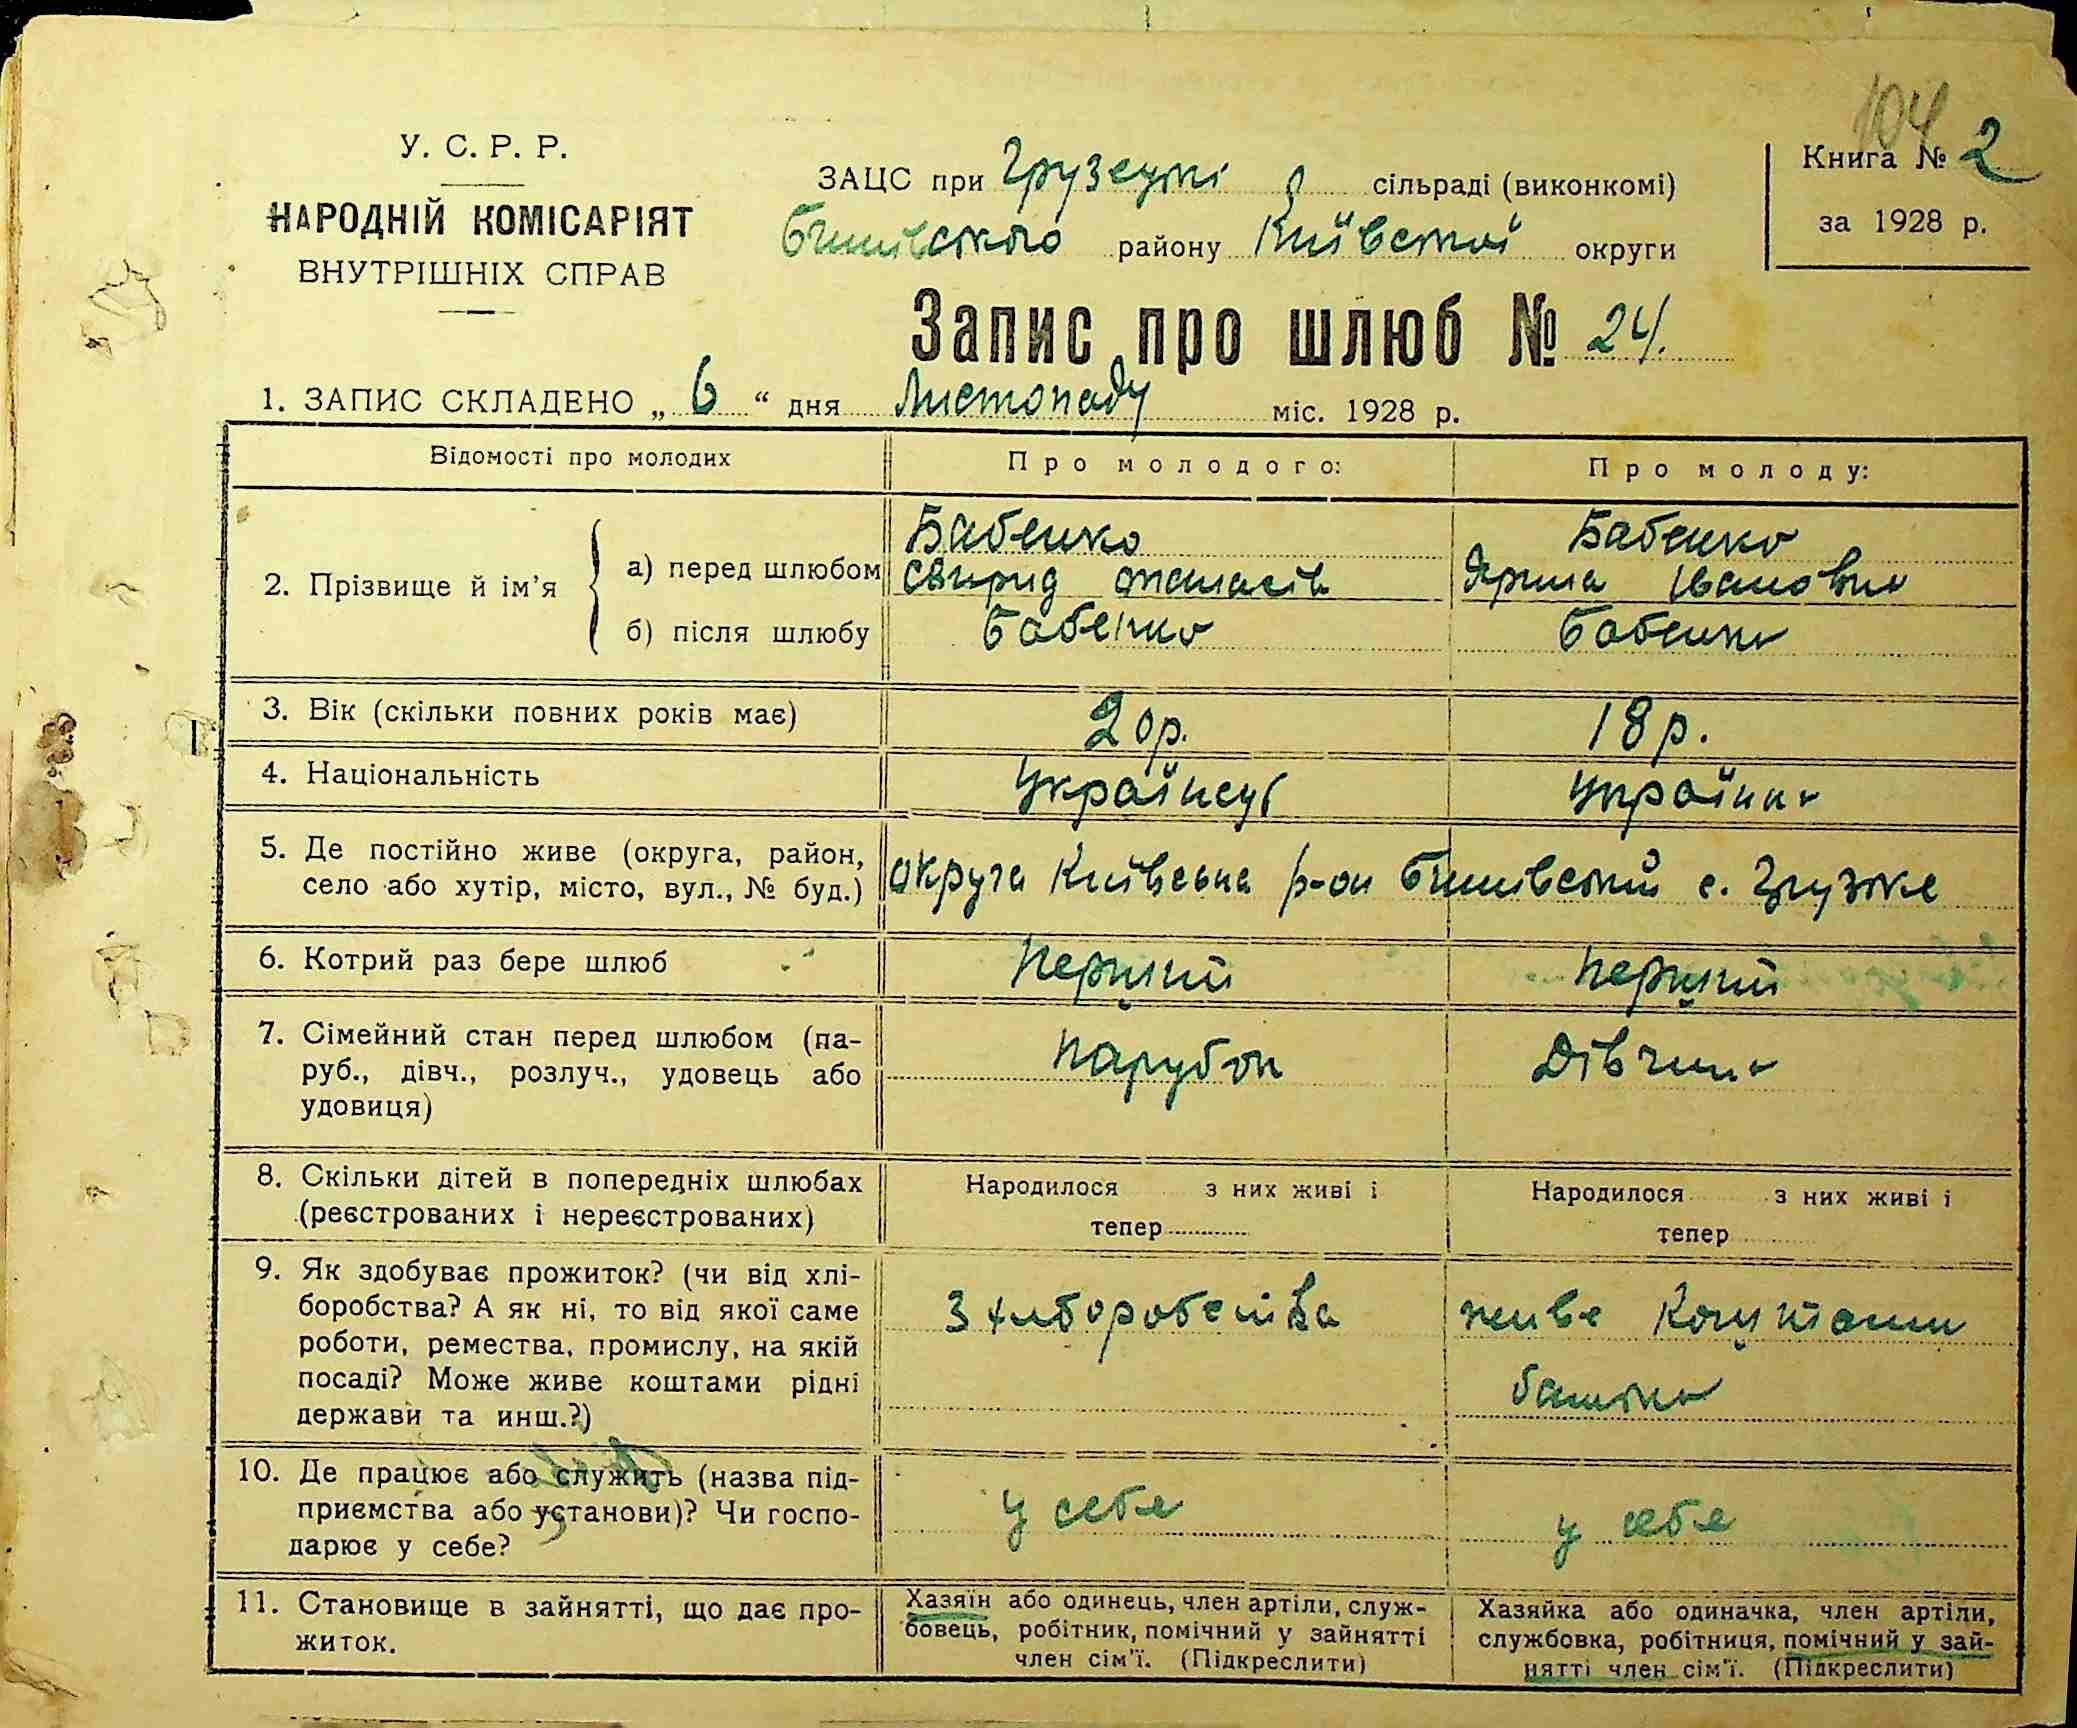 104
У. С. Р. Р.
НАРОДНІЙ КОМІСАРІЯТ
ВНУТРІШНІХ СПРАВ
ЗАЦС при Грузецькі сільраді (виконкомі)
Бишівського району Київської округи
Книга № 2
за 1928 р.
Запис про шлюб № 24.
1. ЗАПИС СКЛАДЕНО „ 6 “ дня Листопаду міс. 1928 р.
Відомості про молодих
Про молодого:
Про молоду:
2. Прізвище й ім’я
а) перед шлюбом
Бабенко
Свирид Опанасів
Бабенко
Ярина Івановна
б) після шлюбу
Бабенко
Бабенко
3. Вік (скільки повних років має)
20р.
18р.
4. Національність
Українець
Українка
5. Де постійно живе (округа, район,
село або хутір, місто, вул., № буд.)
округа Київська р-он Бишівський с. Грузьке
6. Котрий раз бере шлюб
Перший
Перший
7. Сімейний стан перед шлюбом (па-
руб., дівч., розлуч., удовець або
удовиця)
Парубок
Дівчина
8. Скільки дітей в попередніх шлюбах
(реєстрованих і нереєстрованих)
Народилося з них живі і
тепер
Народилося з них живі і
тепер
9. Як здобуває прожиток? (чи від хлі-
боробства? А як ні, то від якої саме
роботи, ремества, промислу, на якій
посаді? Може живе коштами рідні
держави та инш.?)
З хліборобства
живе коштами
батька
10. Де працює або служить (назва під-
приємства або установи)? Чи госпо-
дарює у себе?
у себе
у себе
11. Становище в зайнятті, що дає про-
житок.
Хазяїн або одинець, член артіли, служ-
бовець, робітник, помічний у зайнятті
член сім’ї. (Підкреслити)
Хазяйка або одиначка, член артіли,
службовка, робітниця, помічний у зай-
нятті член сім’ї. (Підкреслити)